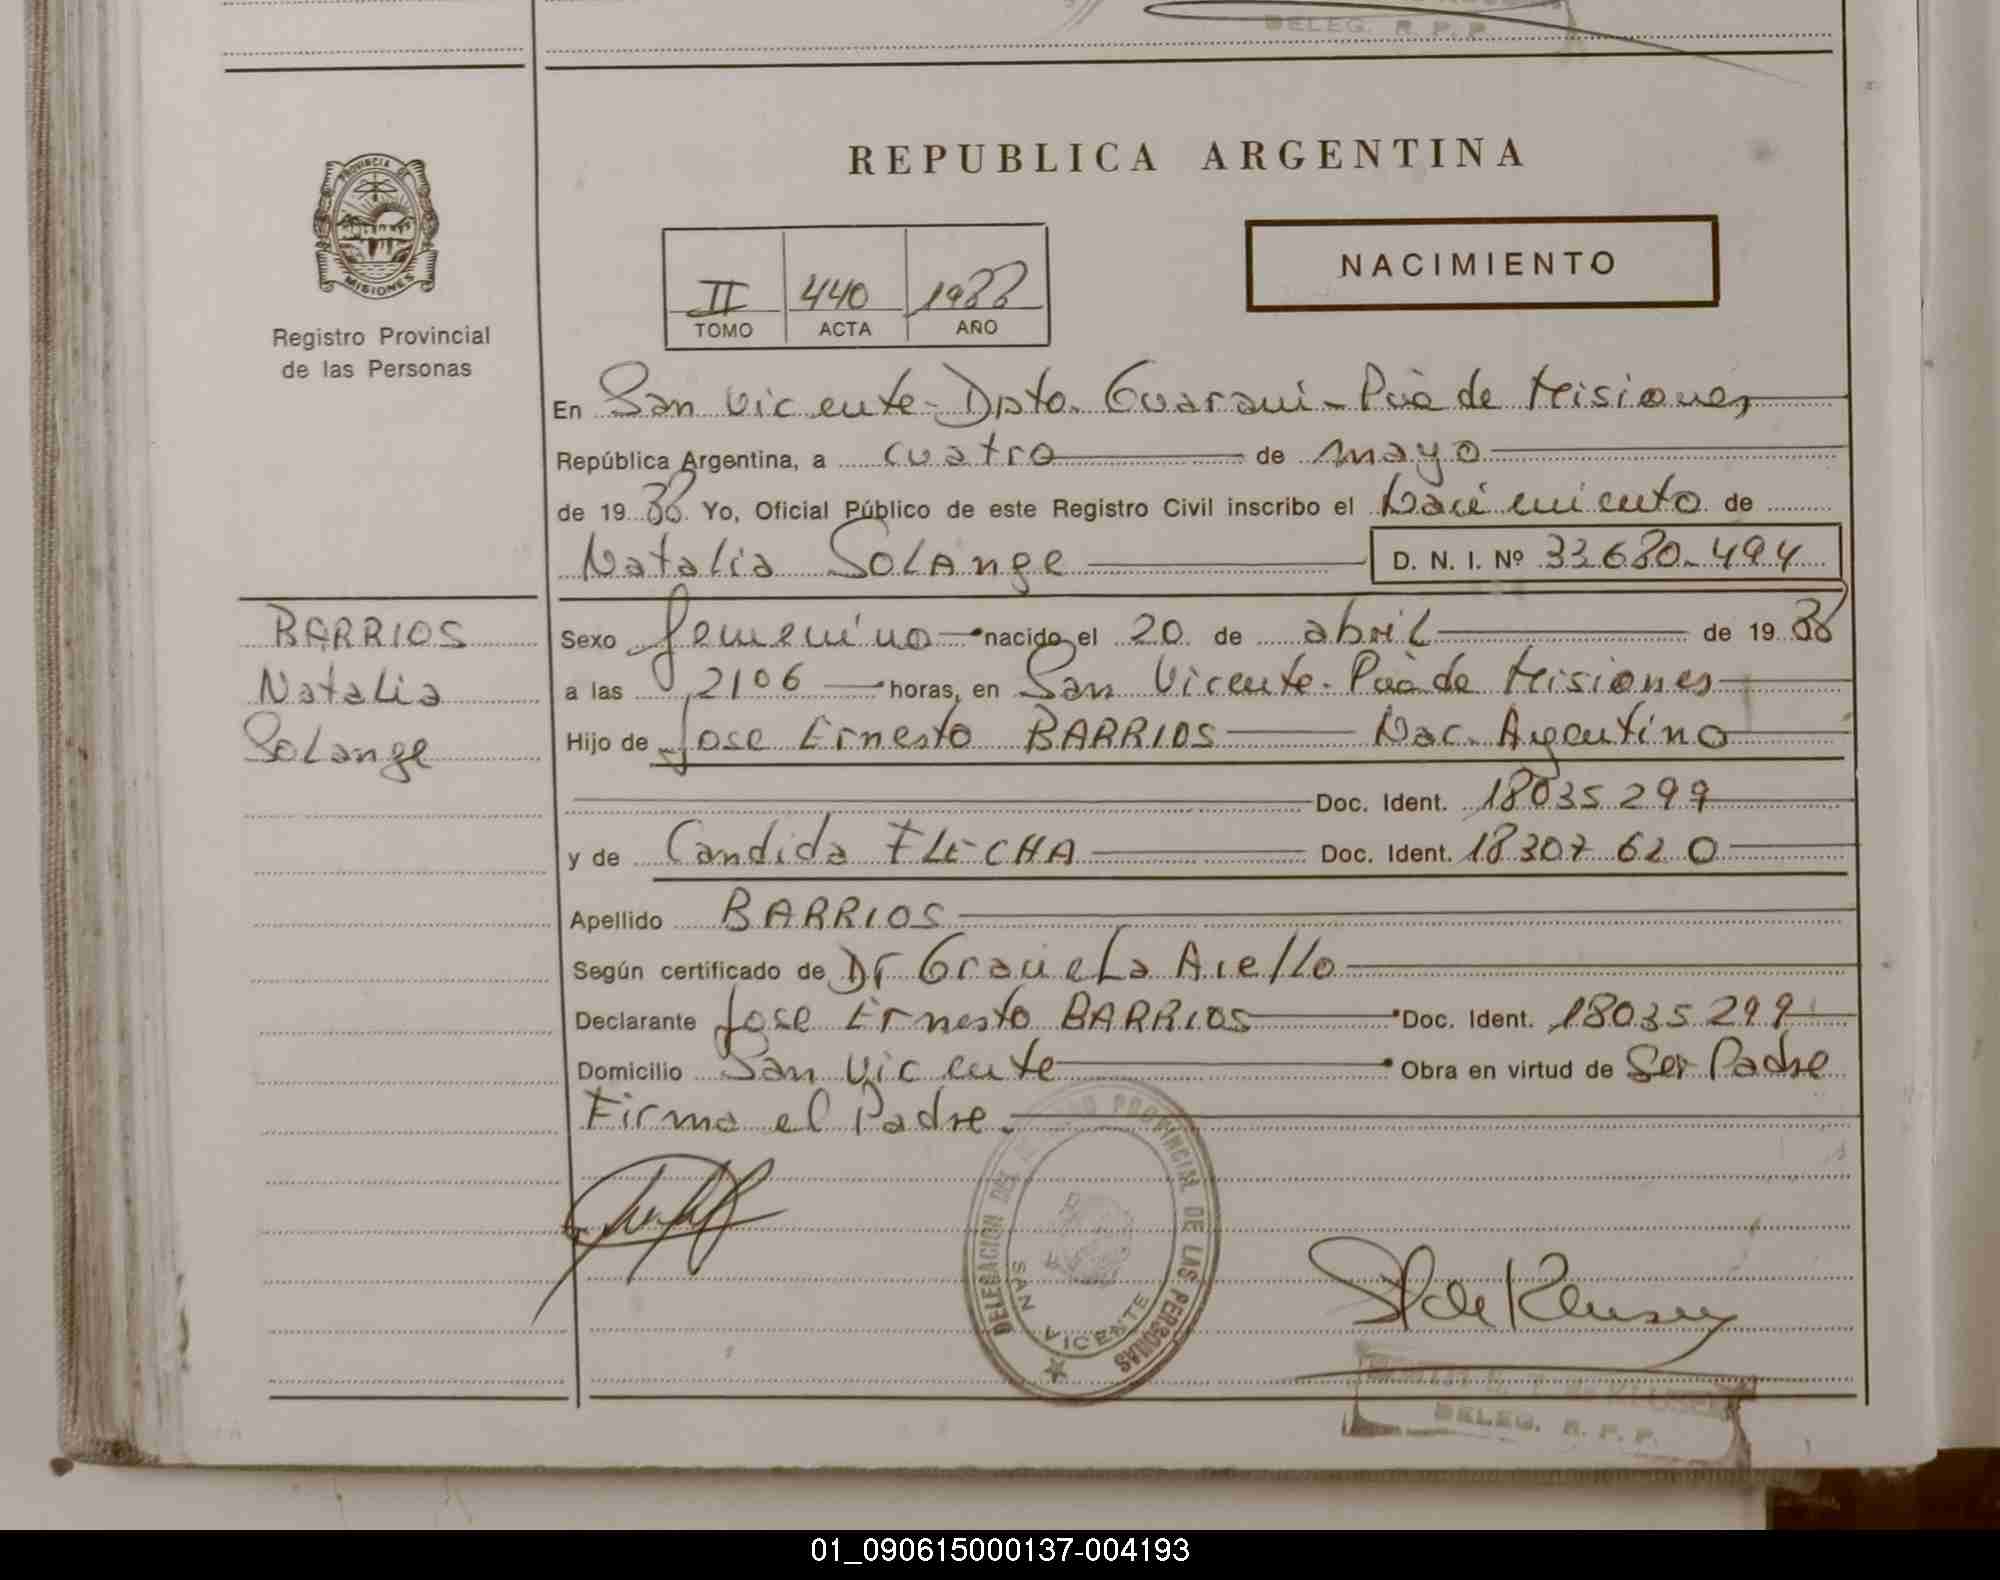 DELEG. R. P. P.
PROVINCIA DE
MISIONES
Registro Provincial
de las Personas
REPUBLICA ARGENTINA
NACIMIENTO
II 440 1988
TOMO ACTA AÑO
En San Vicente - Dpto. Guarani - Pcia de Misiones
República Argentina, a cuatro de mayo
de 19 88 Yo, Oficial Público de este Registro Civil inscribo el Nacimiento de
Natalia Solange D. N. I. Nº 33.680.494
BARRIOS
Natalia
Solange
Sexo femenino nacido el 20 de abril de 19 88
a las 2106 horas, en San Vicente - Pcia de Misiones
Hijo de Jose Ernesto BARRIOS Nac. Argentino
Doc. Ident. 18035299
y de Candida FLECHA Doc. Ident. 18307620
Apellido BARRIOS
Según certificado de Dr Graciela Aiello
Declarante Jose Ernesto BARRIOS Doc. Ident. 18035299
Domicilio San Vicente Obra en virtud de Ser Padre
Firma el Padre.
DELEGACION DEL PROVINCIAL DE LAS PERSONAS
SAN VICENTE
DELEG. R. P. P.
01_090615000137-004193